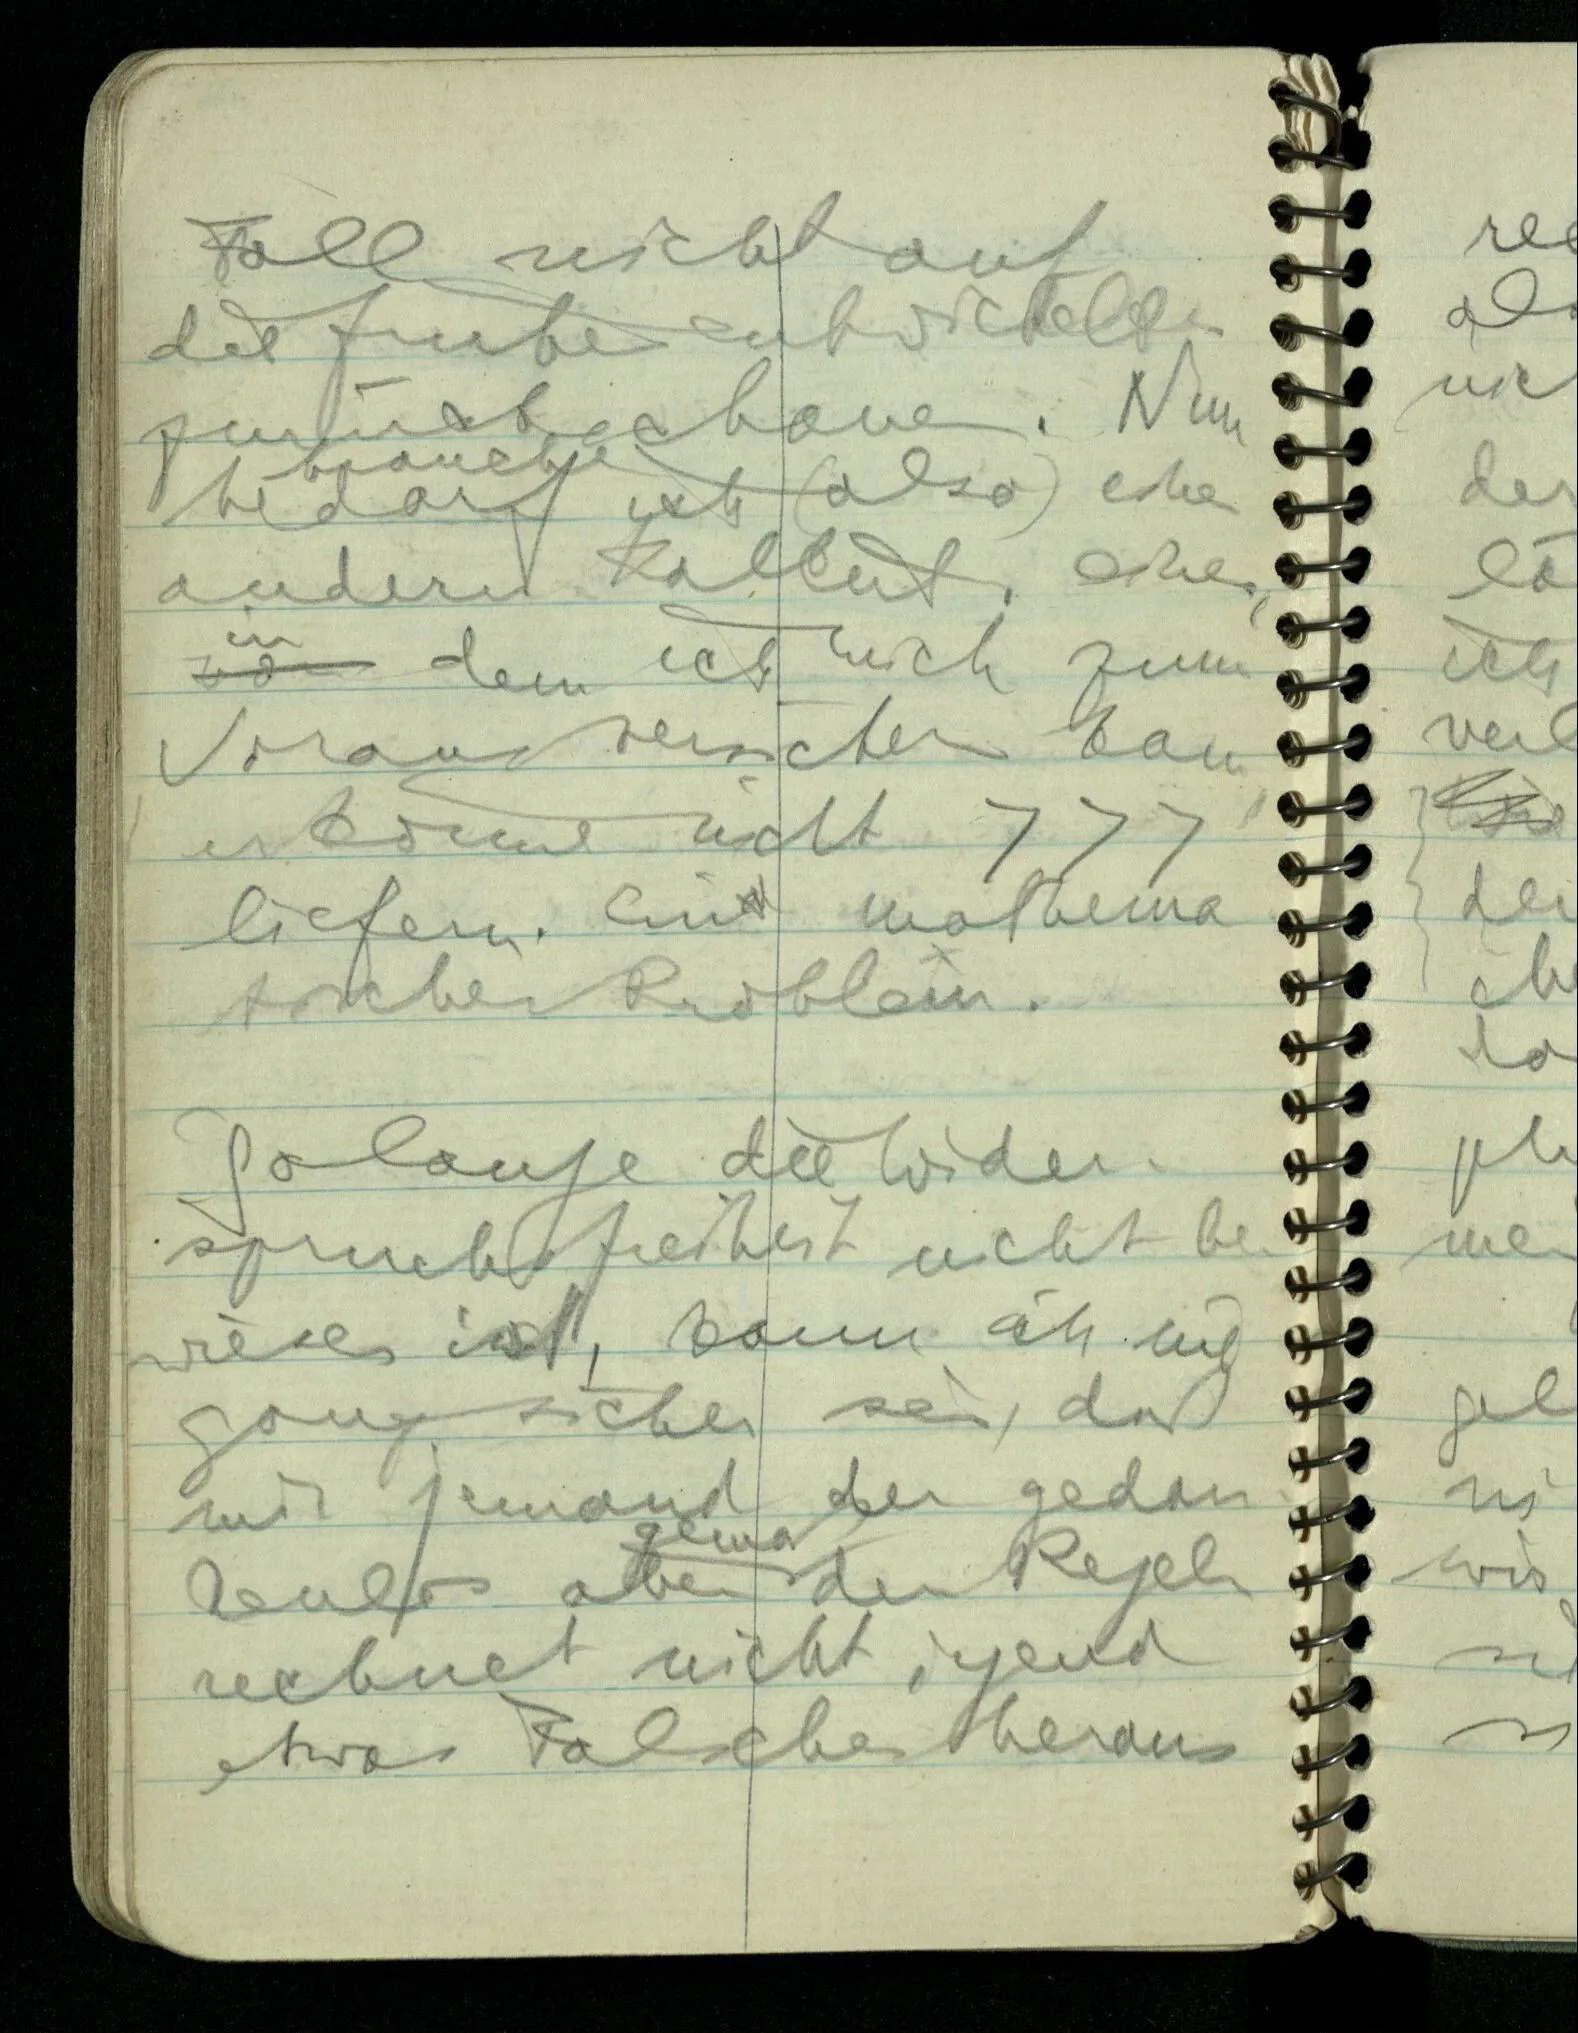 Fall nicht auf
die früher entwickelten
zurückschauen. Nun
brauche
bedarf ich (also) eine
andern Kalkül, einen,
in
so dem ich mich zum
Voraus versichern kann
er könne nicht 777
liefern. Ein mathema
tisches Problem.
Solange die Wider-
spruchsfreiheit nicht be-
wiesen ist, kann ich nie
ganz sicher sein, daß
mir jemand der gedan-
kenlos aber den Regeln
gemäß
rechnet nicht irgend
etwas Falsches heraus
rec
nich
der
ich